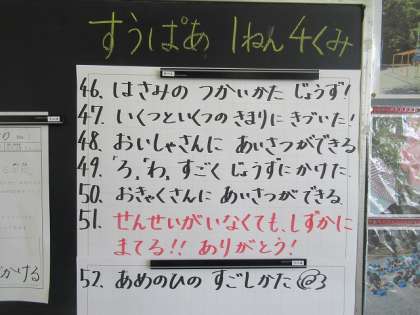 すうぱあ 1ねん4くみ
46. はさみの つかいかた じょうず!
47. いくつといくつの きまりに きづいた!
48. おいしゃさんに あいさつができる
49. "ろ"、"わ" すごく じょうずに かけた.
50. おきゃくさんに あいさつが できる.
51. せんせいが いなくても、しずかに
まてる!! ありがとう!
52. あめのひの すごしかた @3
かける